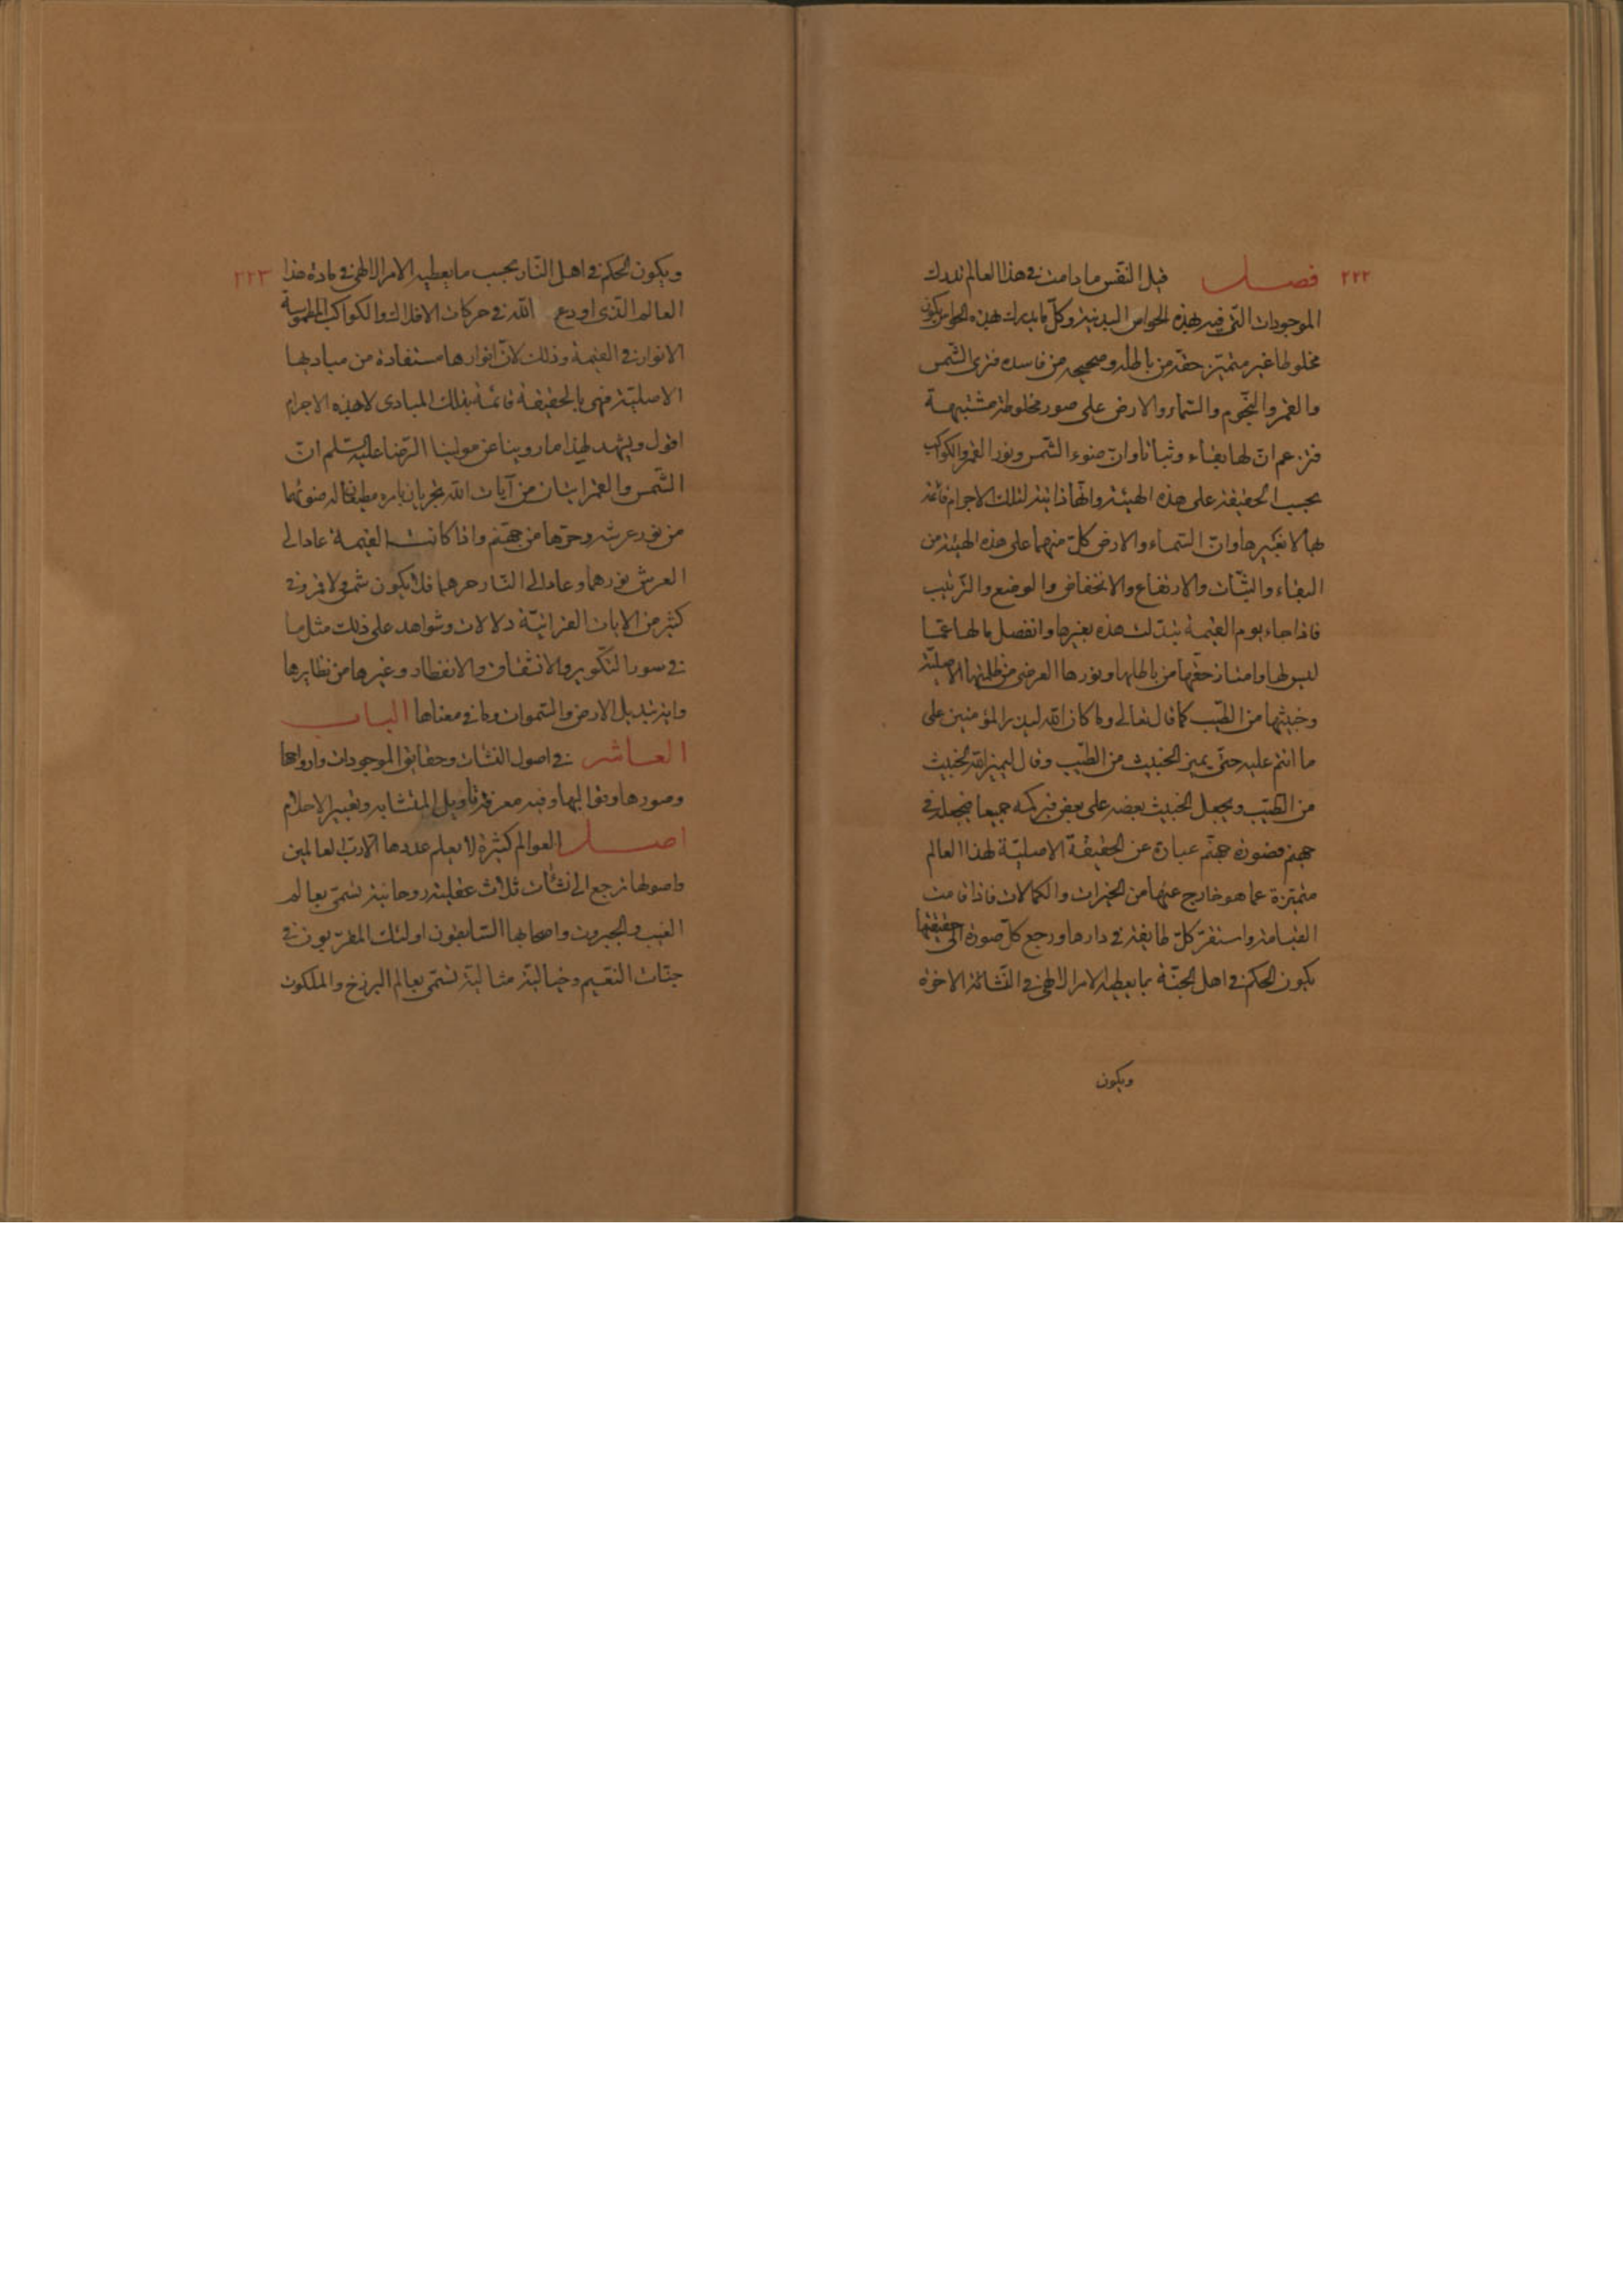 ٢٢٢ فصل قيل النفس ما دامت في هذا العالم تدرك
الموجودات التي فيه بهذه الحواس البدنية وكل ما يدرك بهذه الحواس يكون
مخلوطا غير متميز حقه من باطله وصحيحه من فاسده فترى الشمس
والقمر والنجوم والسماء والارض على صور مخلوطة مشتبهة
فتزعم ان لها بقاء وثباتا وان ضوء الشمس ونور القمر والكواكب
بحسب الحقيقة على هذه الهيئة وانها ذاتية لتلك الاجرام قائمة
بها لا بغيرها وان السماء والارض كل منهما على هذه الهيئة من
البقاء والثبات والارتفاع والانخفاض والوضع والترتيب
فاذا جاء يوم القيمة تبدلت هذه بغيرها وانفصل ما لها عما
ليس لها وامتاز حقها من باطلها ونورها العرضي من ظلمتها الاصلية
وخبيثها من الطيب كما قال تعالى وما كان الله ليذر المؤمنين على
ما انتم عليه حتى يميز الخبيث من الطيب وقال ليميز الله الخبيث
من الطيب ويجعل الخبيث بعضه على بعض فيركمه جميعا فيجعله في
جهنم فصورة جهنم عبارة عن الحقيقة الاصلية لهذا العالم
متميزة عما هو خارج عنها من الخيرات والكمالات فاذا قامت
القيامة واستقر كل طايفة في دارها ورجع كل صورة الى حقيقتها
يكون الحكم في اهل الجنة بما يعطيه الامر الالهي في النشأة الاخرة
ويكون
ويكون الحكم في اهل النار بحسب ما يعطيه الامر الالهي في مادة هذا ٢٢٣
العالم الذي اودع الله في حركات الافلاك والكواكب المطموسة
الانوار في القيمة وذلك لان انوارها مستفادة من مباديها
الاصلية فهي بالحقيقة قائمة بتلك المبادى لا بهذه الاجرام
اقول ويشهد لهذا ما روينا عن مولينا الرضا عليه السلم ان
الشمس والقمر ايتان من آيات الله يجريان بامره مطيعان له ضوئهما
من نور عرشه وحرهما من جهنم واذا كانت القيمة عاد الى
العرش نورهما وعاد الى النار حرهما فلا يكون شمس ولا قمر وفي
كثير من الايات القرانية دلالات وشواهد على ذلك مثل ما
في سور التكوير والانشقاق والانفطار وغيرها من نظايرها
واية تبديل الارض والسموات وما في معناها الباب
العاشر في اصول النشات وحقايق الموجودات وارواحها
وصورها وقواليها وفيه معرفة تأويل المتشابه وتعبير الاحلام
اصل العوالم كثيرة لا يعلم عددها الا رب العالمين
واصولها ترجع الى نشآت ثلاث عقلية روحانية تسمى بعالم
الغيب والجبروت واصحابها السابقون اولئك المقربون في
جنات النعيم وخيالية مثالية تسمى بعالم البرزخ والملكوت